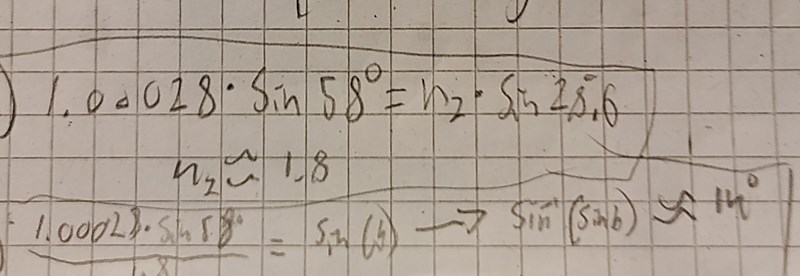 ) 1.00028 · Sin 58° = n₂ · Sin 28.6
n₂ ≈ 1.8
1.00028 · Sin 58° / 1.8 = Sin(b) → Sin⁻¹(Sinb) ≈